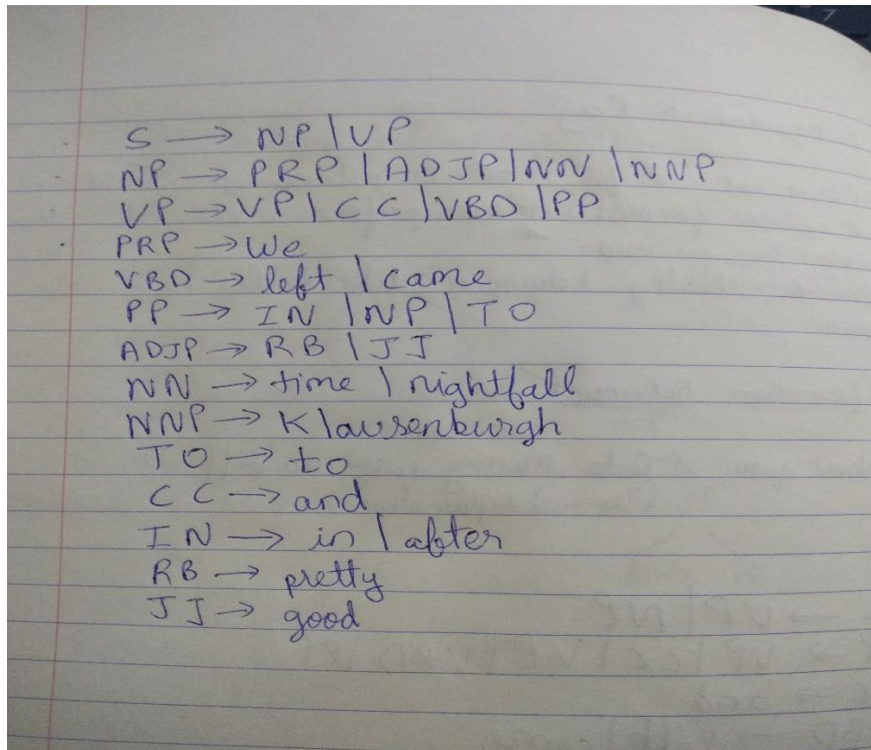 S → NP | VP
NP → PRP | ADJP | NN | NNP
VP → VP | CC | VBD | PP
PRP → We
VBD → left | came
PP → IN | NP | TO
ADJP → RB | JJ
NN → time | nightfall
NNP → Klausenburgh
TO → to
CC → and
IN → in | after
RB → pretty
JJ → good